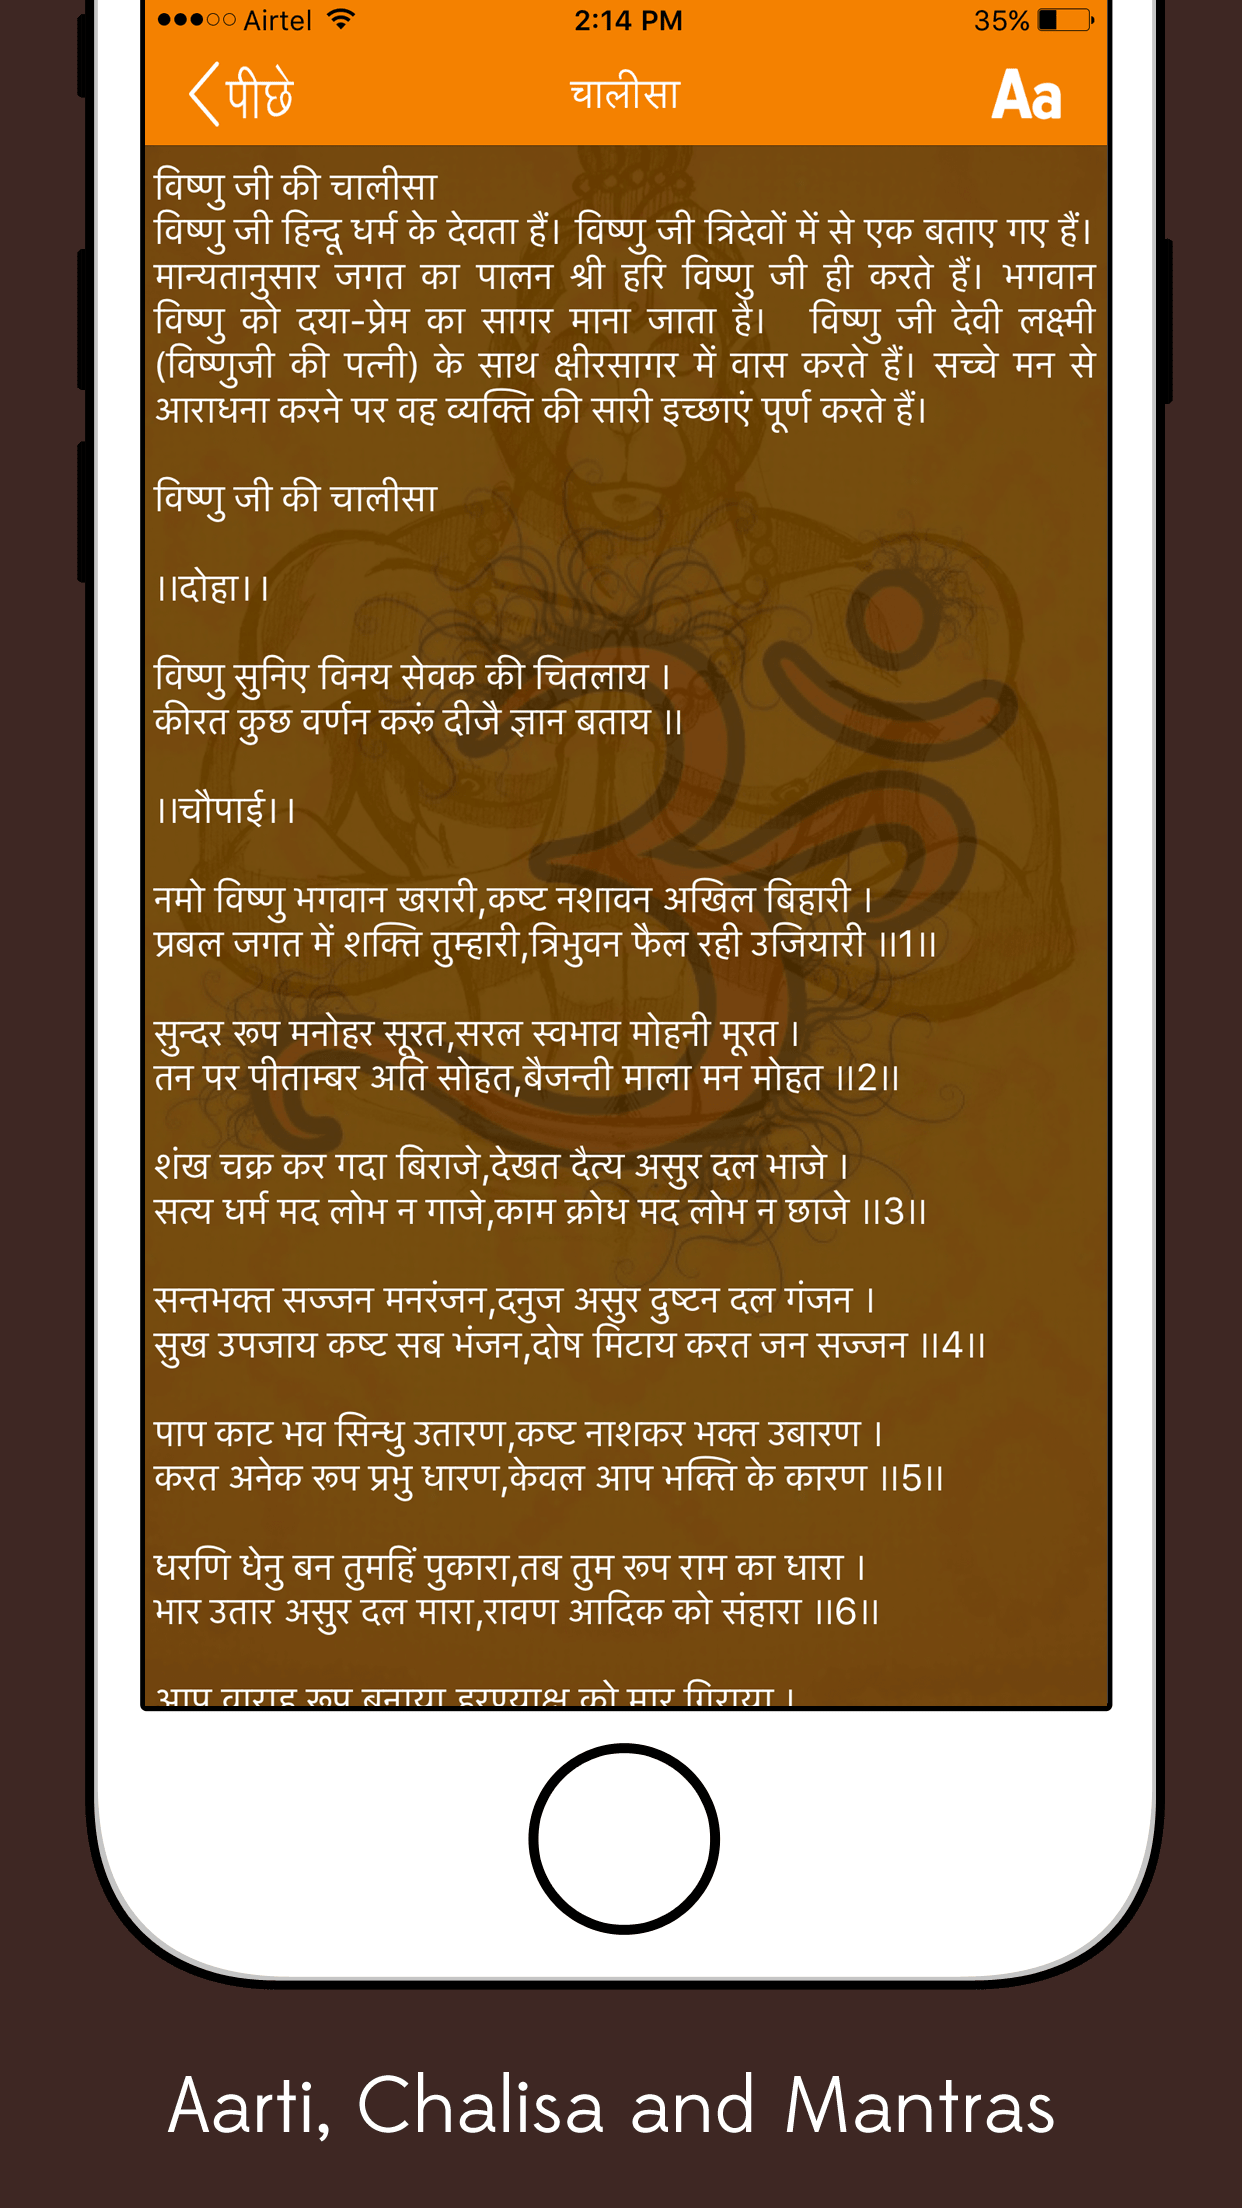 ●●●○○ Airtel 2:14 PM 35%
पीछे चालीसा Aa
विष्णु जी की चालीसा
विष्णु जी हिन्दू धर्म के देवता हैं। विष्णु जी त्रिदेवों में से एक बताए गए हैं।
मान्यतानुसार जगत का पालन श्री हरि विष्णु जी ही करते हैं। भगवान
विष्णु को दया-प्रेम का सागर माना जाता है। विष्णु जी देवी लक्ष्मी
(विष्णुजी की पत्नी) के साथ क्षीरसागर में वास करते हैं। सच्चे मन से
आराधना करने पर वह व्यक्ति की सारी इच्छाएं पूर्ण करते हैं।
विष्णु जी की चालीसा
।।दोहा।।
विष्णु सुनिए विनय सेवक की चितलाय ।
कीरत कुछ वर्णन करूं दीजै ज्ञान बताय ॥
।।चौपाई।।
नमो विष्णु भगवान खरारी,कष्ट नशावन अखिल बिहारी ।
प्रबल जगत में शक्ति तुम्हारी,त्रिभुवन फैल रही उजियारी ॥1॥
सुन्दर रूप मनोहर सूरत,सरल स्वभाव मोहनी मूरत ।
तन पर पीताम्बर अति सोहत,बैजन्ती माला मन मोहत ॥2॥
शंख चक्र कर गदा बिराजे,देखत दैत्य असुर दल भाजे ।
सत्य धर्म मद लोभ न गाजे,काम क्रोध मद लोभ न छाजे ॥3॥
सन्तभक्त सज्जन मनरंजन,दनुज असुर दुष्टन दल गंजन ।
सुख उपजाय कष्ट सब भंजन,दोष मिटाय करत जन सज्जन ॥4॥
पाप काट भव सिन्धु उतारण,कष्ट नाशकर भक्त उबारण ।
करत अनेक रूप प्रभु धारण,केवल आप भक्ति के कारण ॥5॥
धरणि धेनु बन तुमहिं पुकारा,तब तुम रूप राम का धारा ।
भार उतार असुर दल मारा,रावण आदिक को संहारा ॥6॥
आप वाराह रूप बनाया,हरण्याक्ष को मार गिराया ।
Aarti, Chalisa and Mantras